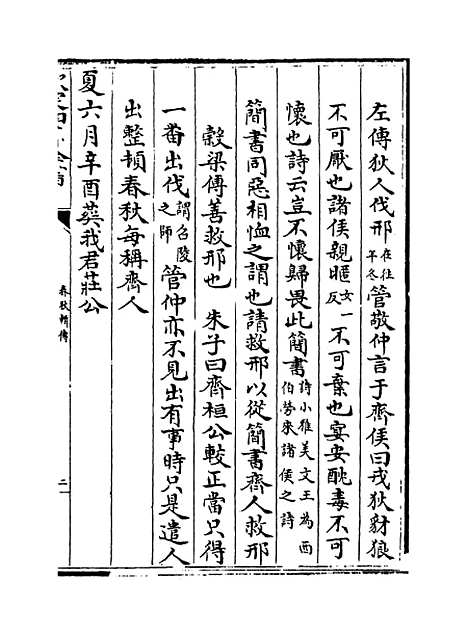 左傳狄人伐邢在往年冬管敬仲言于齊侯曰戎狄豺狼
不可厭也諸侯親暱女一反不可棄也宴安酖毒不可
懷也詩云豈不懷歸畏此簡書詩小雅美文王為西伯勞來諸侯之詩
簡書同惡相恤之謂也請救邢以從簡書齊人救邢
穀梁傳善救邢也　朱子曰齊桓公較正當只得
一畨出伐謂召陵之師管仲亦不見出有事時只是遣人
出整頓春秋每稱齊人
夏六月辛酉葬我君莊公
春秋輯傳
二